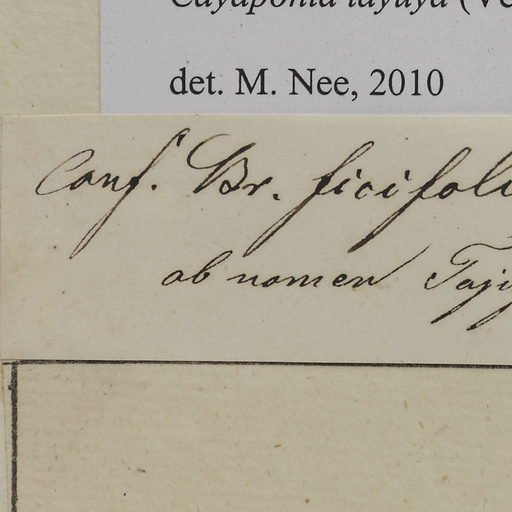 Cayaponia tayuya (Ve
det. M. Nee, 2010
Conf. Br. ficifoli
ob nomen Tajy